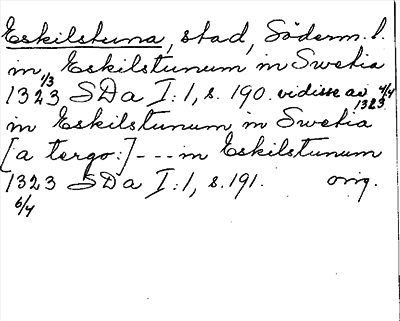 Eskilstuna, stad, Söderm. l.
in Eskilstunum in Swetia
1/3
1323 SDa I:1, s. 190. vidisse av 4/4 1323
in Eskilstunum in Swetia
[a tergo:] --- in Eskilstunum
1323 SDa I:1, s. 191. orig.
6/4